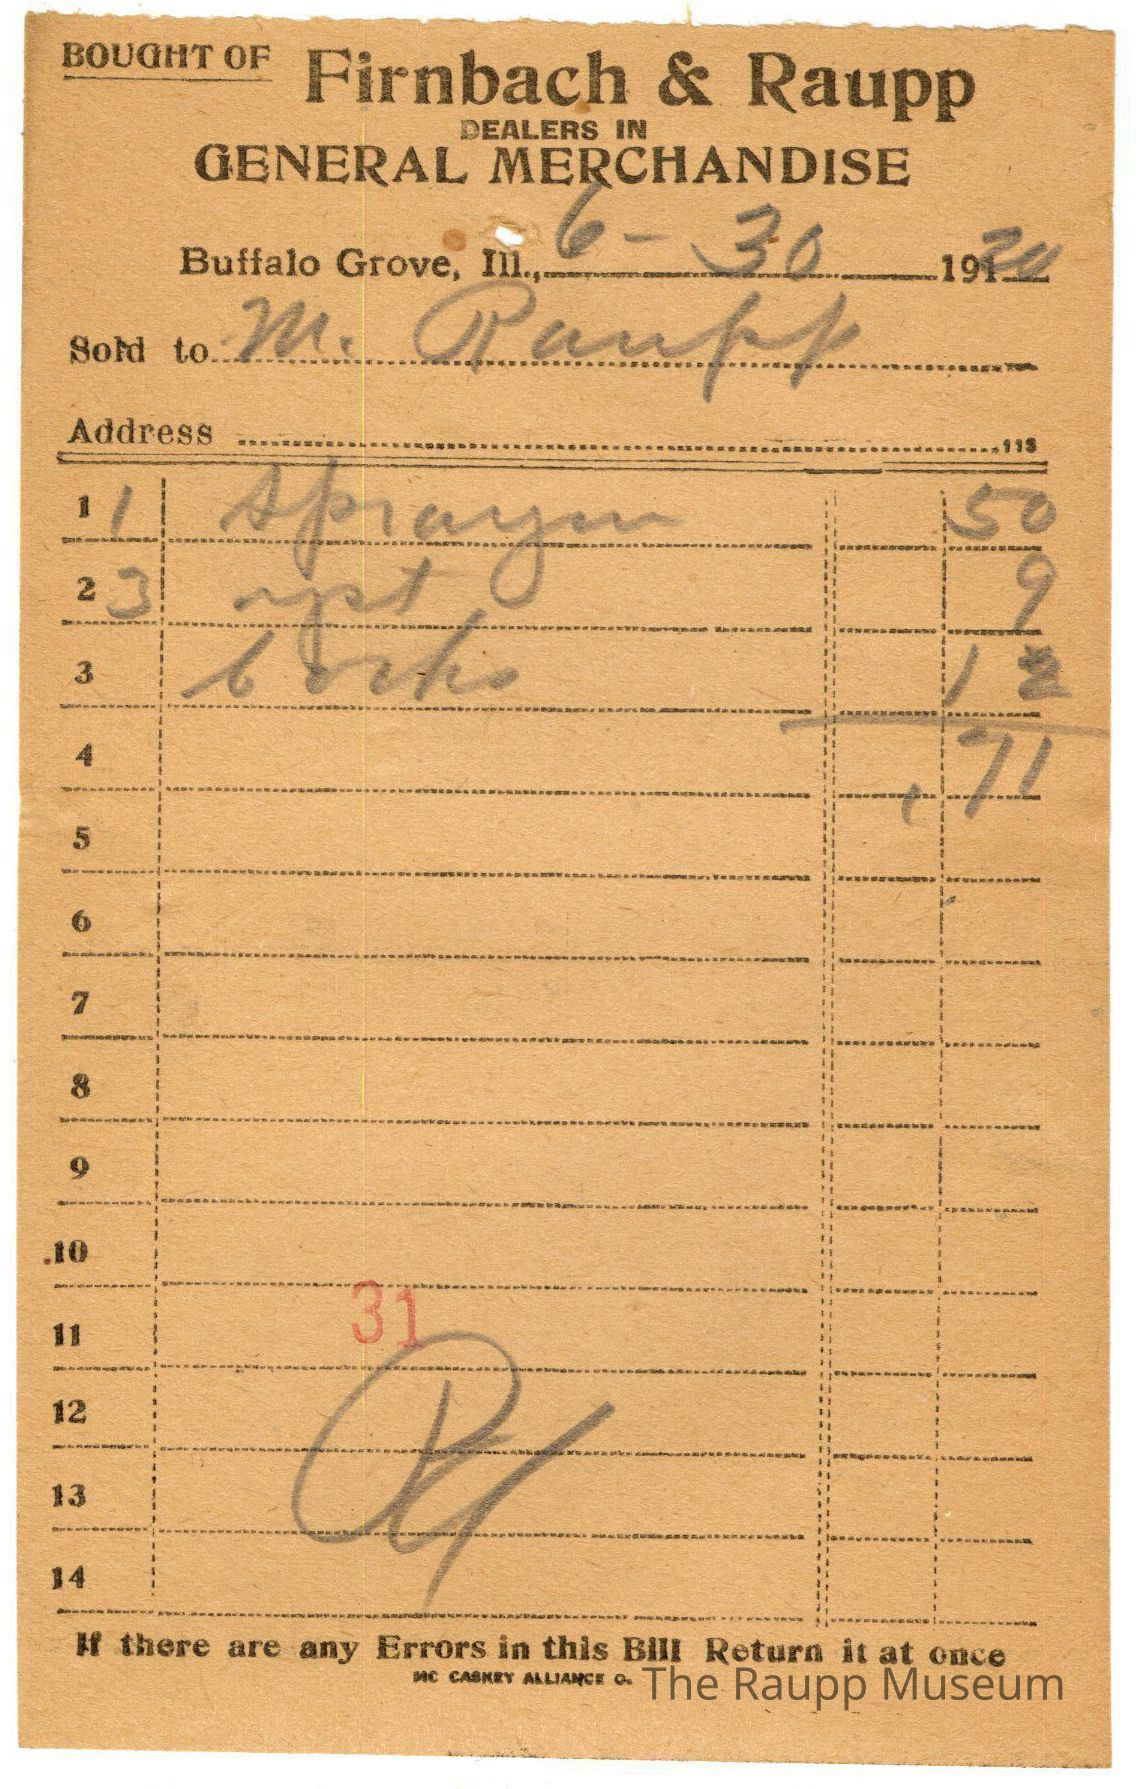 BOUGHT OF Firnbach & Raupp
DEALERS IN
GENERAL MERCHANDISE
Buffalo Grove, Ill., 6-30 1920
Sold to M. Raupp
Address 113
1 1 50
2 3 9
3 12
4 .71
5
6
7
8
9
10
31
11
12
13
14
If there are any Errors in this Bill Return it at once
MC CASKEY ALLIANCE O.
The Raupp Museum